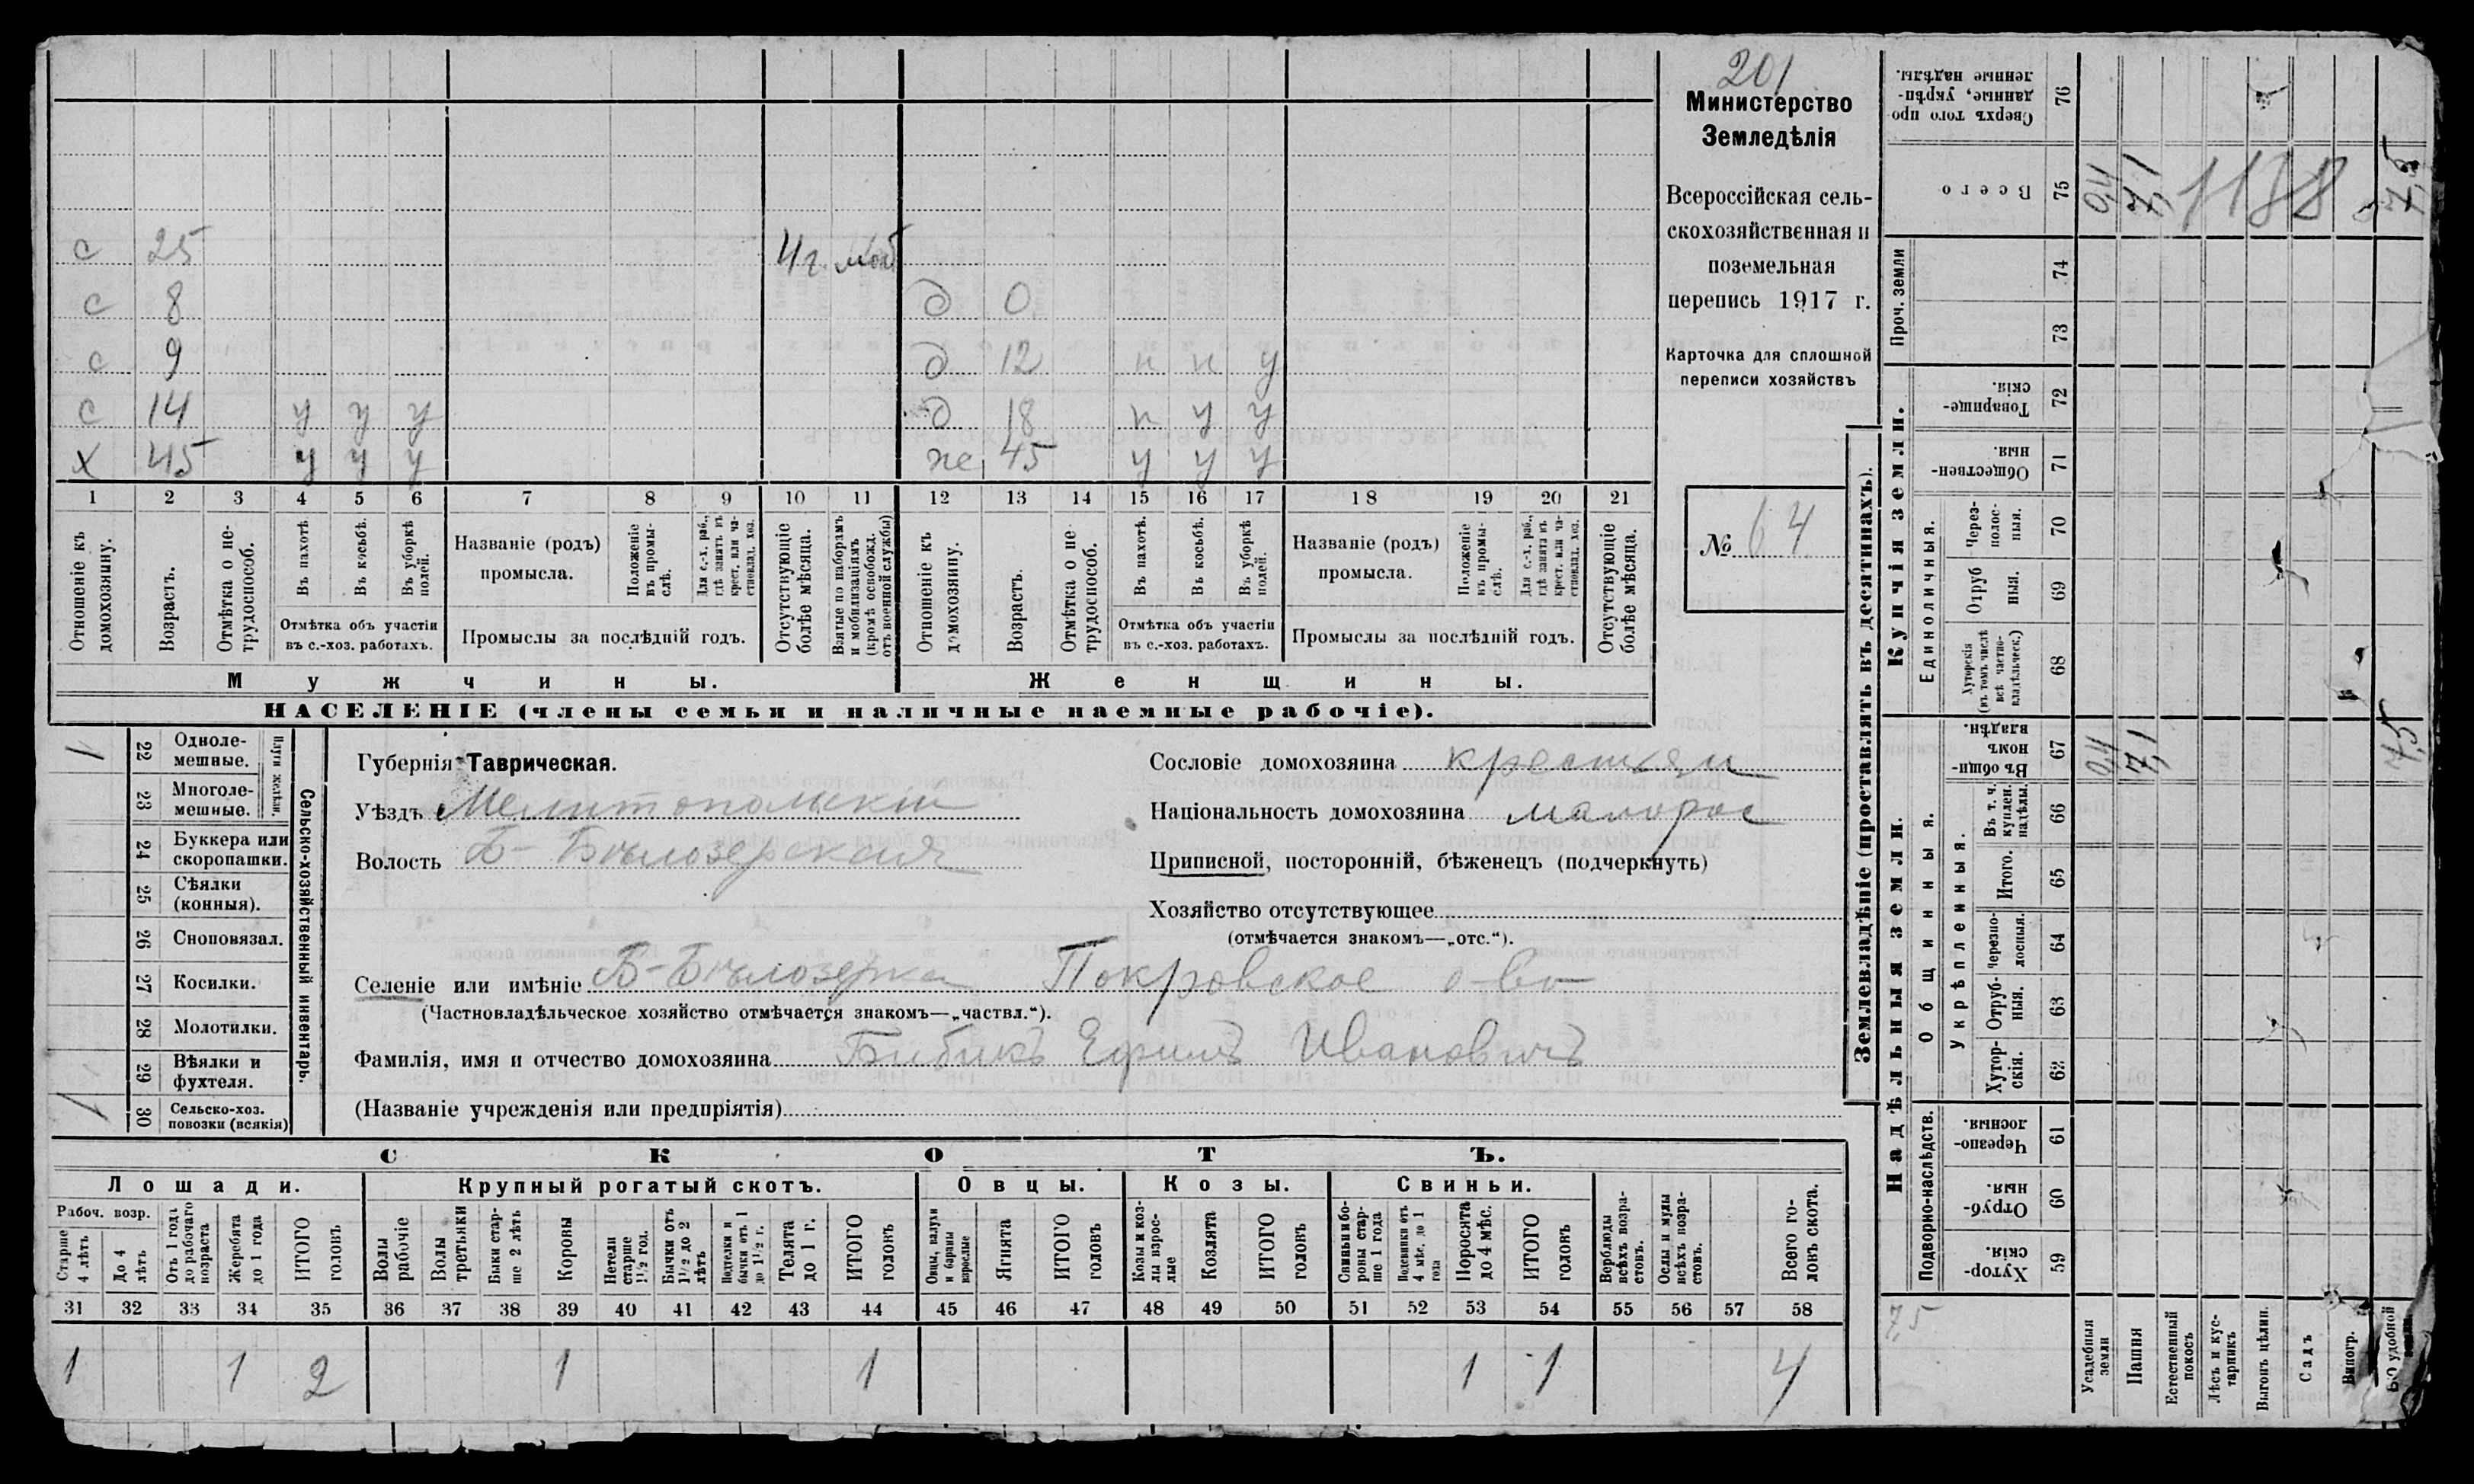 201
Министерство
Земледѣлія
Всероссійская сель-
скохозяйственная и
поземельная
перепись 1917 г.
Карточка для сплошной
переписи хозяйствъ
№ 64
с 25 4 г. моб
с 8 д 0
с 9 д 12 п п у
с 14 у у у д 18 п у у
х 45 у у у ж 45 у у у
1 2 3 4 5 6 7 8 9 10 11 12 13 14 15 16 17 18 19 20 21
Отношеніе къ домохозяину.
Возрастъ.
Отмѣтка о не-трудоспособ.
Въ пахотѣ.
Въ косьбѣ.
Въ уборкѣ полей.
Отмѣтка объ участіи
въ с.-хоз. работахъ.
Названіе (родъ)
промысла.
Положеніе въ промы-слѣ.
Для с.-х. раб., гдѣ занятъ въ крест. или ча-стновлад. хоз.
Промыслы за послѣдній годъ.
Отсутствующіе болѣе мѣсяца.
Взятые по наборамъ и мобилизаціямъ (кромѣ освобожд. отъ военной службы)
Отношеніе къ домохозяину.
Возрастъ.
Отмѣтка о не трудоспособ.
Въ пахотѣ.
Въ косьбѣ.
Въ уборкѣ полей.
Отмѣтка объ участіи
въ с.-хоз. работахъ.
Названіе (родъ)
промысла.
Положеніе въ промы-слѣ.
Для с.-х. раб., гдѣ занята въ крест. или ча-стновлад. хоз.
Промыслы за послѣдній годъ.
Отсутствующіе болѣе мѣсяца.
Мужчины.
Женщины.
НАСЕЛЕНІЕ (члены семьи и наличные наемные рабочіе).
Сельско-хозяйственный инвентарь.
1 22 Одноле-мешные.
23 Многоле-мешные.
24 Буккера или скоропашки.
25 Сѣялки (конныя).
26 Сноповязал.
27 Косилки.
28 Молотилки.
29 Вѣялки и фухтеля.
1 30 Сельско-хоз. повозки (всякія)
Губернія Таврическая.
Уѣздъ Мелитопольскій
Волость Б-Бѣлозерская
Сословіе домохозяина крестьян
Національность домохозяина малорос
Приписной, посторонній, бѣженецъ (подчеркнуть)
Хозяйство отсутствующее
(отмѣчается знакомъ—„отс.“).
Селеніе или имѣніе Б-Бѣлозерка Покровское о-во
(Частновладѣльческое хозяйство отмѣчается знакомъ—„частвл.“).
Фамилія, имя и отчество домохозяина Бибикъ Ефимъ Ивановичъ
(Названіе учрежденія или предпріятія)
СКОТЪ.
Лошади. Крупный рогатый скотъ. Овцы. Козы. Свиньи.
Рабоч. возр.
Старше 4 лѣтъ
До 4 лѣтъ
Отъ 1 года до рабочаго возраста
Жеребята до 1 года
ИТОГО головъ
Волы рабочіе
Волы третьяки
Быки стар-ше 2 лѣтъ
Коровы
Нетели старше 1½ год.
Бычки отъ 1½ до 2 лѣтъ
Подтелки и бычки отъ 1 до 1½ г.
Телята до 1 г.
ИТОГО головъ
Овцы, валухи и бараны взрослые
Ягнята
ИТОГО головъ
Козы и коз-лы взрос-лые
Козлята
ИТОГО головъ
Свиньи и бо-ровы стар-ше 1 года
Подсвинки отъ 4 мѣс. до 1 года
Поросята до 4 мѣс.
ИТОГО головъ
Верблюды всѣхъ возра-стовъ.
Ослы и мулы всѣхъ возра-стовъ.
Всего го-ловъ скота.
31 32 33 34 35 36 37 38 39 40 41 42 43 44 45 46 47 48 49 50 51 52 53 54 55 56 57 58
1 1 2 1 1 1 1 4
Землевладѣніе (проставлять въ десятинахъ).
Надѣльныя земли.
Купчія земли.
Проч. земли
Подворно-наслѣдств.
Общинныя.
Укрѣпленныя.
Единоличныя.
Сверхъ того про данные, укрѣп-ленные надѣлы. 76
Всего 75 0,4 7,1 7,5
74
73
Товарище-скія. 72
Обществен-ныя. 71
Через-полос-ныя. 70
Отруб ныя. 69
Хуторскія (въ томъ числѣ всѣ частно-владѣльческ.) 68
Въ общи-номъ владѣн. 67 0,4 7,1 7,5
Въ т. ч. куплен. надѣлы. 66
Итого. 65
черезпо-лосныя. 64
Отруб-ныя. 63
Хутор-скія. 62
Черезпо-лосныя. 61
Отруб-ныя. 60
Хутор-скія. 59
7,5
Усадебныя земли
Пашня
Естественный покосъ
Лѣсъ и кус-тарникъ
Выгонъ цѣлин.
Садъ
Виногр.
удобной